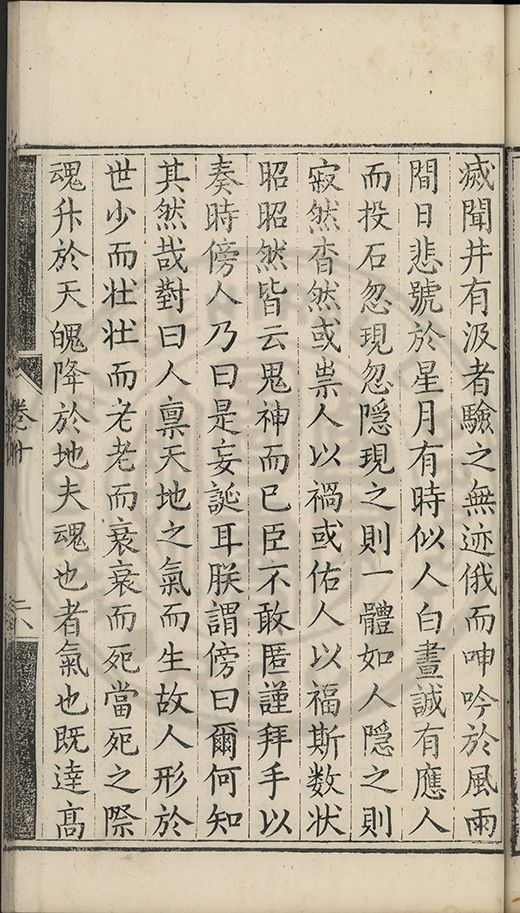 滅聞井有汲者驗之無迹俄而呻吟於風雨
間日悲號於星月有時似人白晝誠有應人
而投石忽現忽隱現之則一體如人隱之則
寂然杳然或祟人以禍或佑人以福斯数状
昭昭然皆云鬼神而已臣不敢匿謹拜手以
奏時傍人乃曰是妄誕耳朕謂傍曰爾何知
其然哉對曰人禀天地之氣而生故人形於
世少而壮壮而老老而衰衰而死當死之際
魂升於天魄降於地夫魂也者氣也既達高
卷十
六